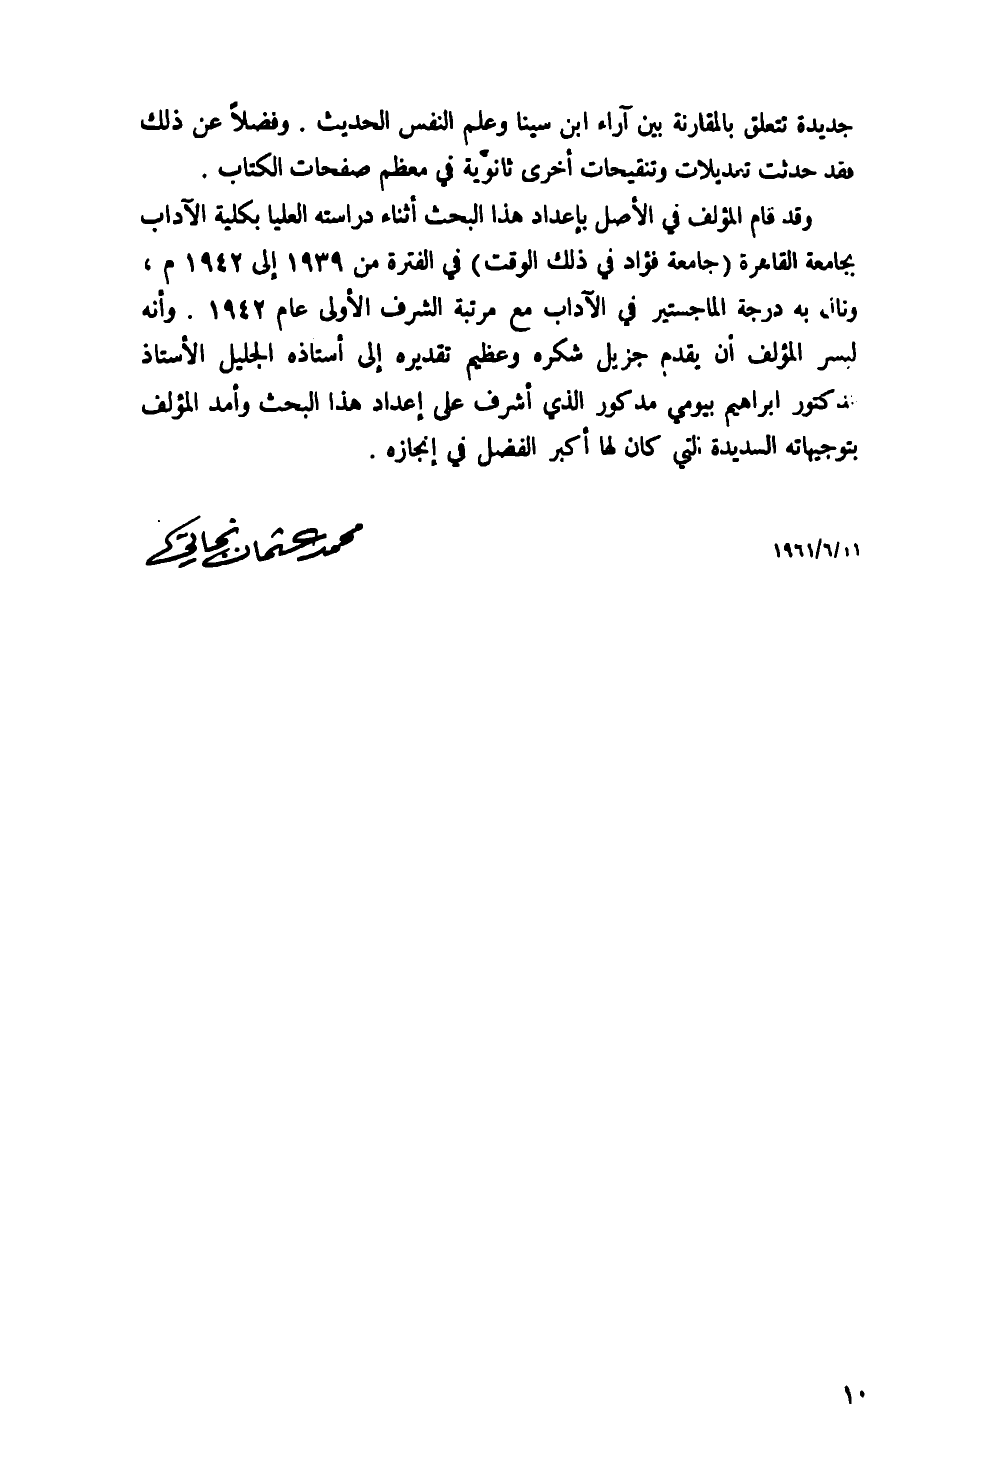 جديدة تتعلق بالمقارنة بين آراء ابن سينا وعلم النفس الحديث . وفضلاً عن ذلك
فقد حدثت تعديلات وتنقيحات أخرى ثانويّة في معظم صفحات الكتاب .
وقد قام المؤلف في الأصل بإعداد هذا البحث أثناء دراسته العليا بكلية الآداب
بجامعة القاهرة (جامعة فؤاد في ذلك الوقت) في الفترة من ١٩٣٩ إلى ١٩٤٢ م ،
ونال به درجة الماجستير في الآداب مع مرتبة الشرف الأولى عام ١٩٤٢ . وأنه
ليسر المؤلف أن يقدم جزيل شكره وعظيم تقديره إلى أستاذه الجليل الأستاذ
الدكتور ابراهيم بيومي مدكور الذي أشرف على إعداد هذا البحث وأمد المؤلف
بتوجيهاته السديدة التي كان لها أكبر الفضل في إنجازه .
محمد عثمان نجاتي
١٩٦١/٦/١١
١٠